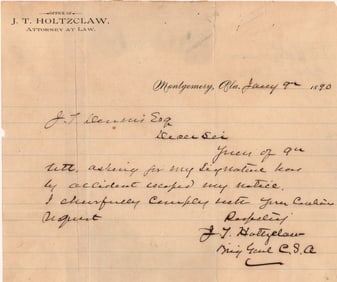 OFFICE OF
J. T. HOLTZCLAW,
ATTORNEY AT LAW.
Montgomery, Ala. Jany 9th 1890
J. T. Dennis Esq
Dear Sir
Yours of 9th
ult, asking for my Signature has
by accident escaped my notice.
I cheerfully Comply with Your
Request
Respctly
J. T. Holtzclaw
Brig Genl C.S.A